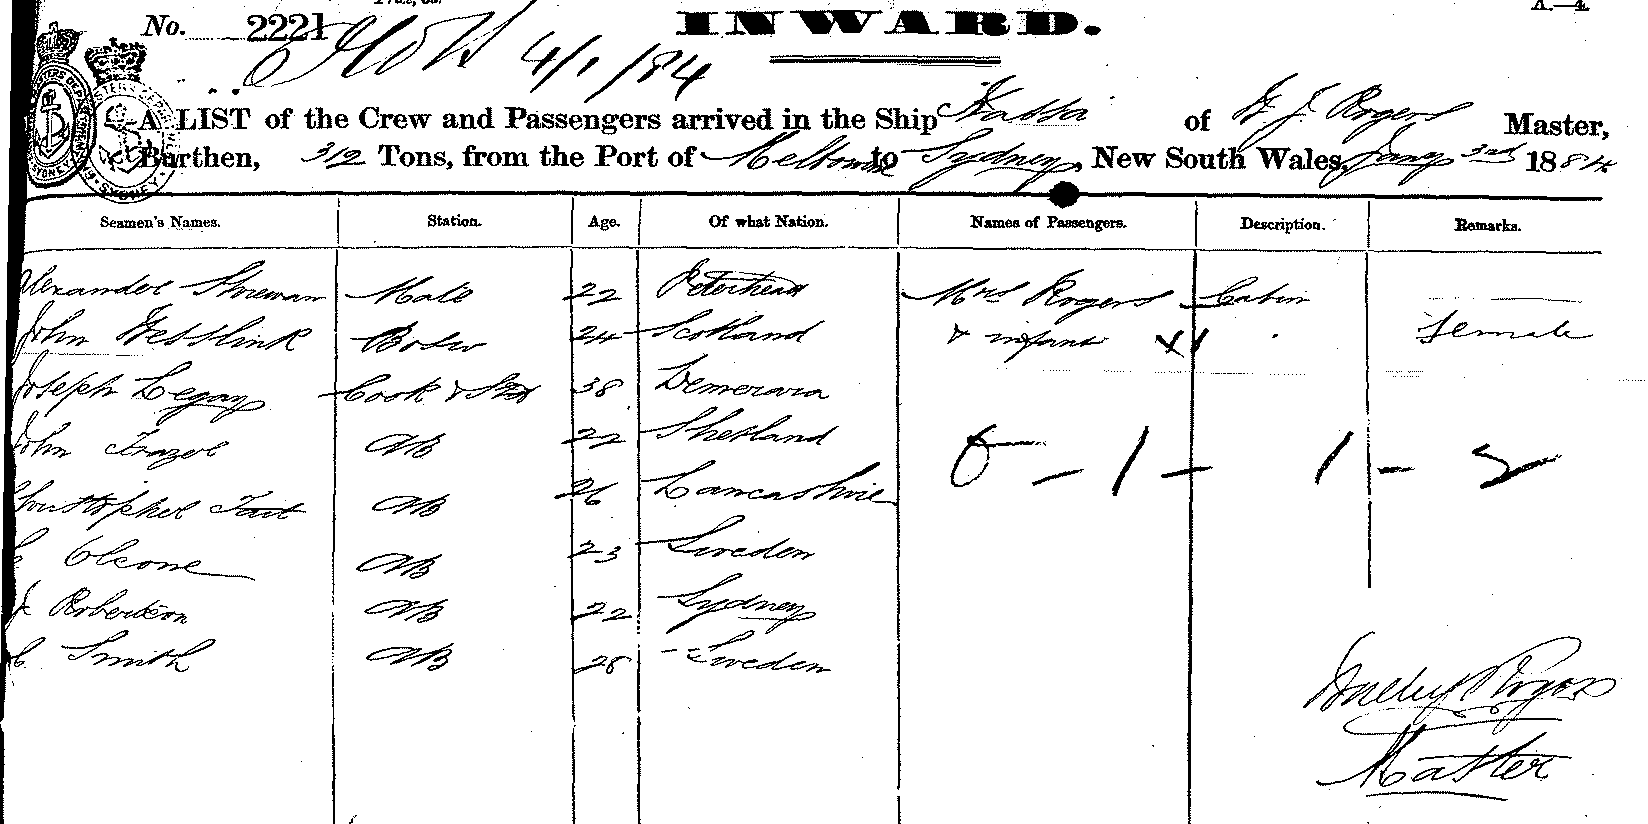 No. 2221
INWARD.
4/1/84
A LIST of the Crew and Passengers arrived in the Ship of W J Rogers Master,
Burthen, 312 Tons, from the Port of Melbourne to Sydney, New South Wales, Jany 3rd 1884
Seamen's Names. Station. Age. Of what Nation. Names of Passengers. Description. Remarks.
Alexander Mate 22 Peterhead Mrs Rogers Cabin
John 24 Scotland & infant Female
Joseph Legay Cook & Std 38 Demerara
John Frazer AB 22 Shetland
Christopher Tait AB 26 Lancashire
AB 23 Sweden
J Robertson AB 22 Sydney
C. Smith AB 28 Sweden
0 - 1 - 1 - 2
Rogers
Master